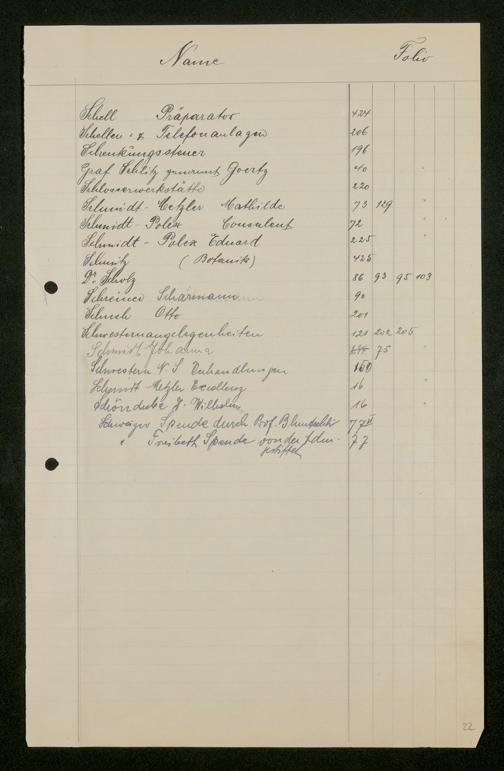 Name Folio
Schell Präparator 424
Schellen- & Telefonanlagen 206
Schenkungssteuer 196
Graf Schlitz genannt Goertz 40
Schlosserwerkstätte 220
Schmidt-Metzler Mathilde 73 129
Schmidt-Polex Consulent 72
Schmidt-Polex Eduard 225
Schmitz (Botanik) 425
Dr. Scholz 86 93 95 103
Schreiner Schürmann 90
Schuch Otto 201
Schwesternangelegenheiten 121 202 205
Schmidt Johanna 75
Schwestern N. S. 160
Schmidt Metzler Excellenz 16
J. Wilhelm 16
Schweizer Spende durch Prof. Bluntschli 77II
" Spende von der 77
22